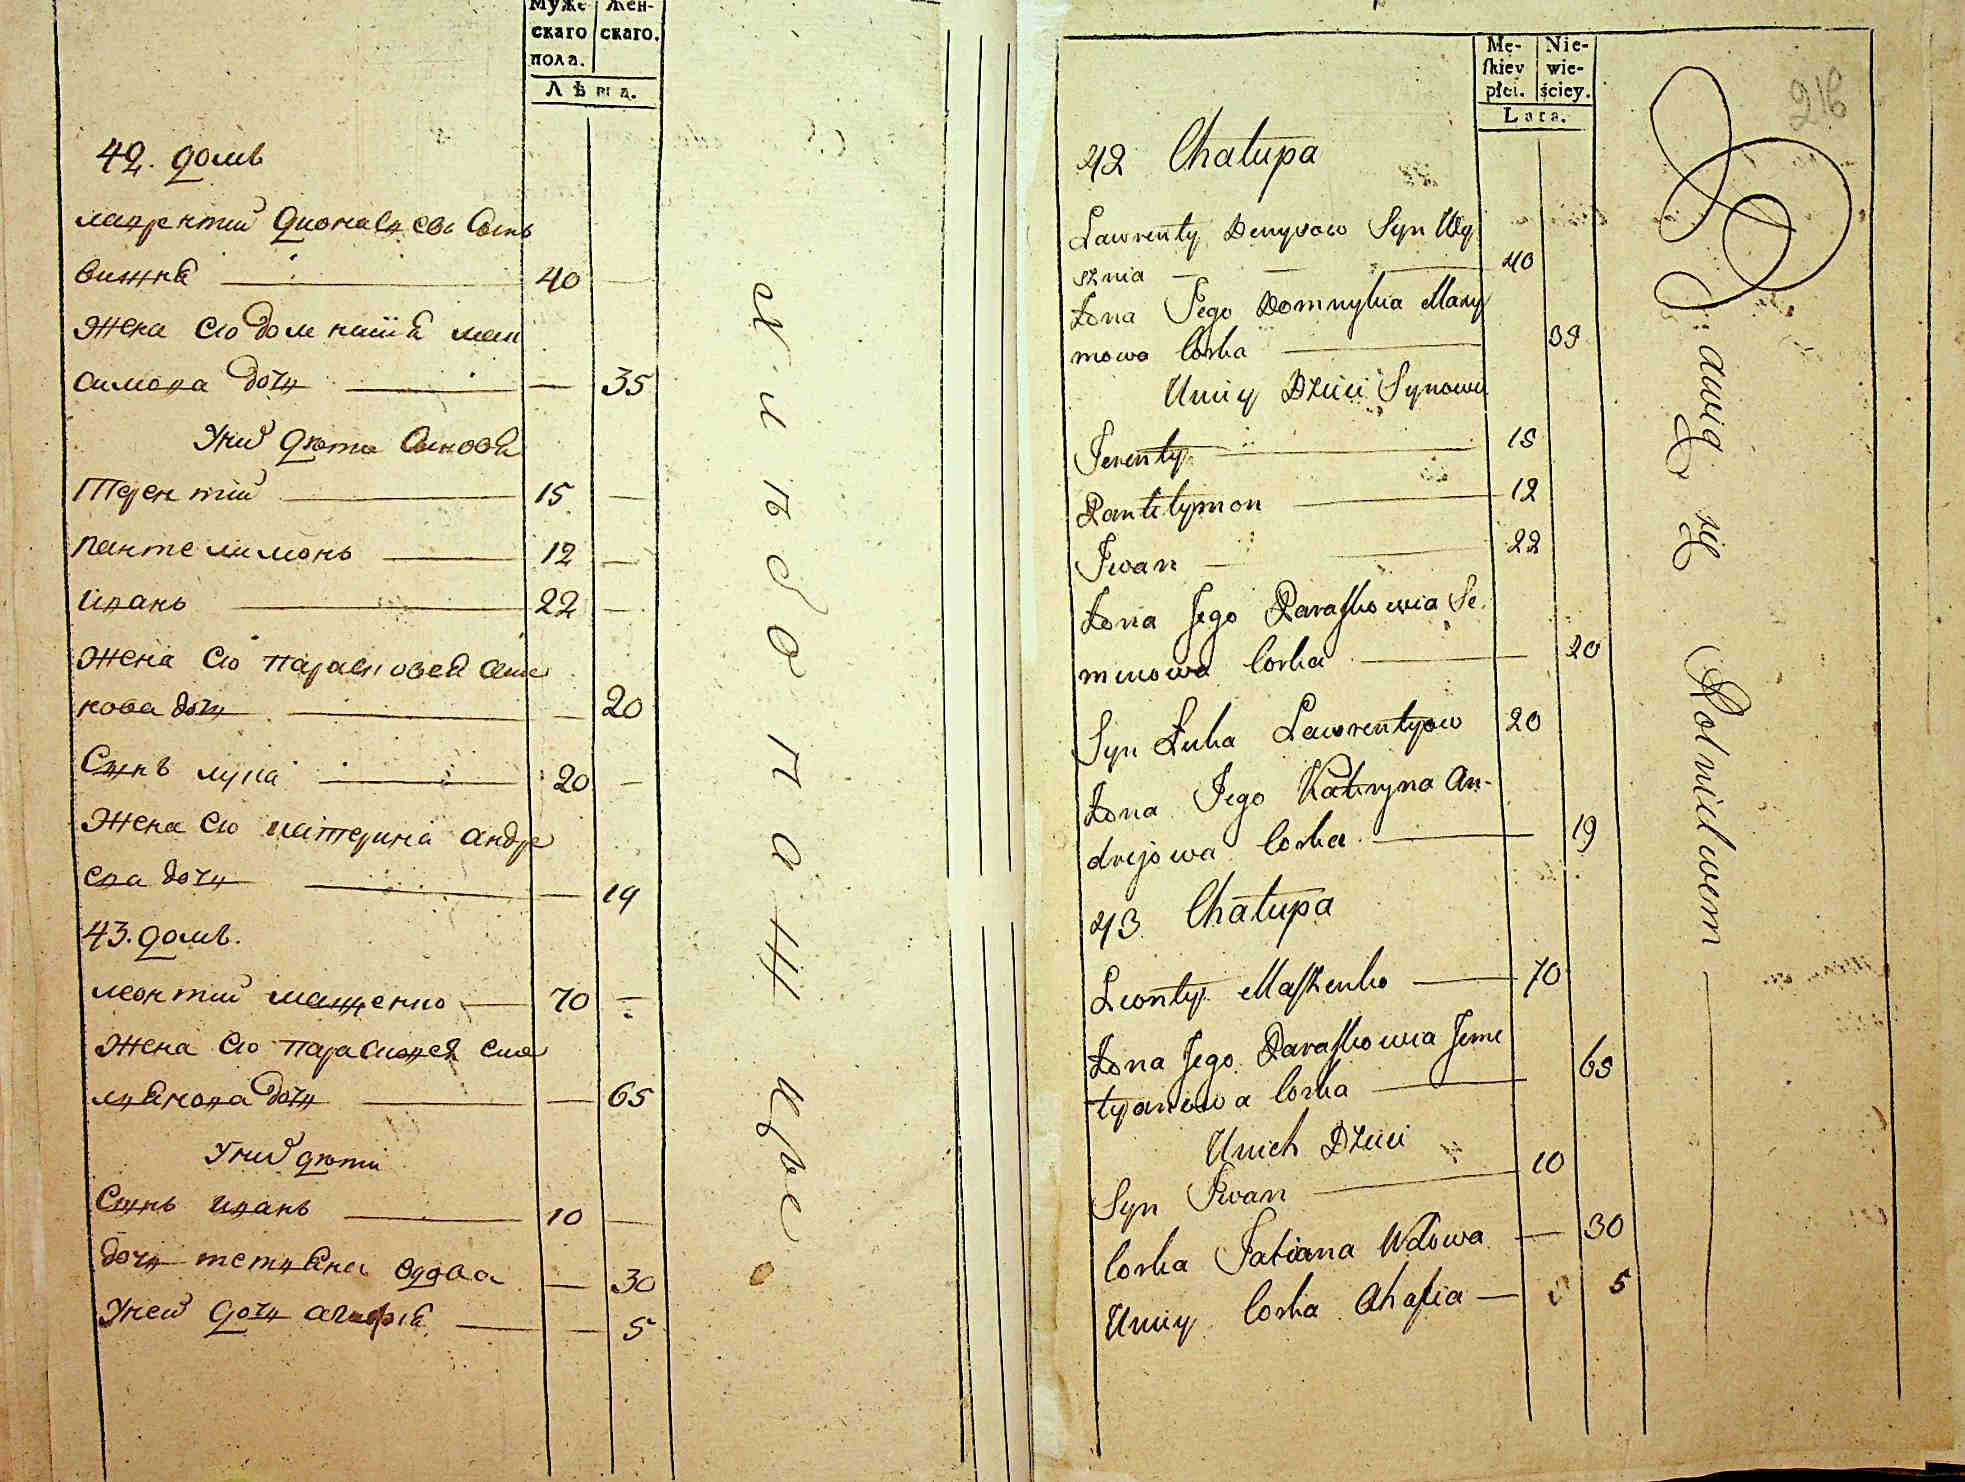 Муже- Жен-
скаго скаго.
пола.
Лѣта.
42. домъ
лаврентий Дионисиевъ Сынъ
вижнѣ 40 —
Жена его домникия мак
симова дочь — 35
У них дѣти Синовѣ
Терентий 15 —
пантелимонъ 12 —
иванъ 22 —
Жена его парасковея семе
нова дочь — 20
Сынъ лука 20 —
Жена его катерина андре
ева дочь — 19
43. домъ.
леонтий мащенко 70 —
Жена его парасковея еме
лянова дочь — 65
У них дѣти
Сынъ иванъ 10 —
дочь тетяна вдова — 30
У ней дочь агафия — 5
хлѣбопашцы
Mę- Nie-
skiey wie-
płci. ściey.
Lata.
216
42 Chałupa
Lawrenty Denysow Syn Wy
sznia 40
Żona Jego Domnykia Maxy
mowa Corka 35
U niey Dzieci Synowie
Terenty 15
Pantelymon 12
Iwan 22
Żona Jego Paraskowia Se
menowa Corka 20
Syn Łuka Lawrentyow 20
Żona Jego Kateryna An-
drejowa Corka 19
43 Chałupa
Leonty Maszenko 70
Żona Jego Paraskowia Jeme
lyanowa Corka 65
U nich Dzieci
Syn Iwan 10
Corka Tatiana Wdowa — 30
U niey Corka Ahafia — 5
Bawią się Rolnictwem